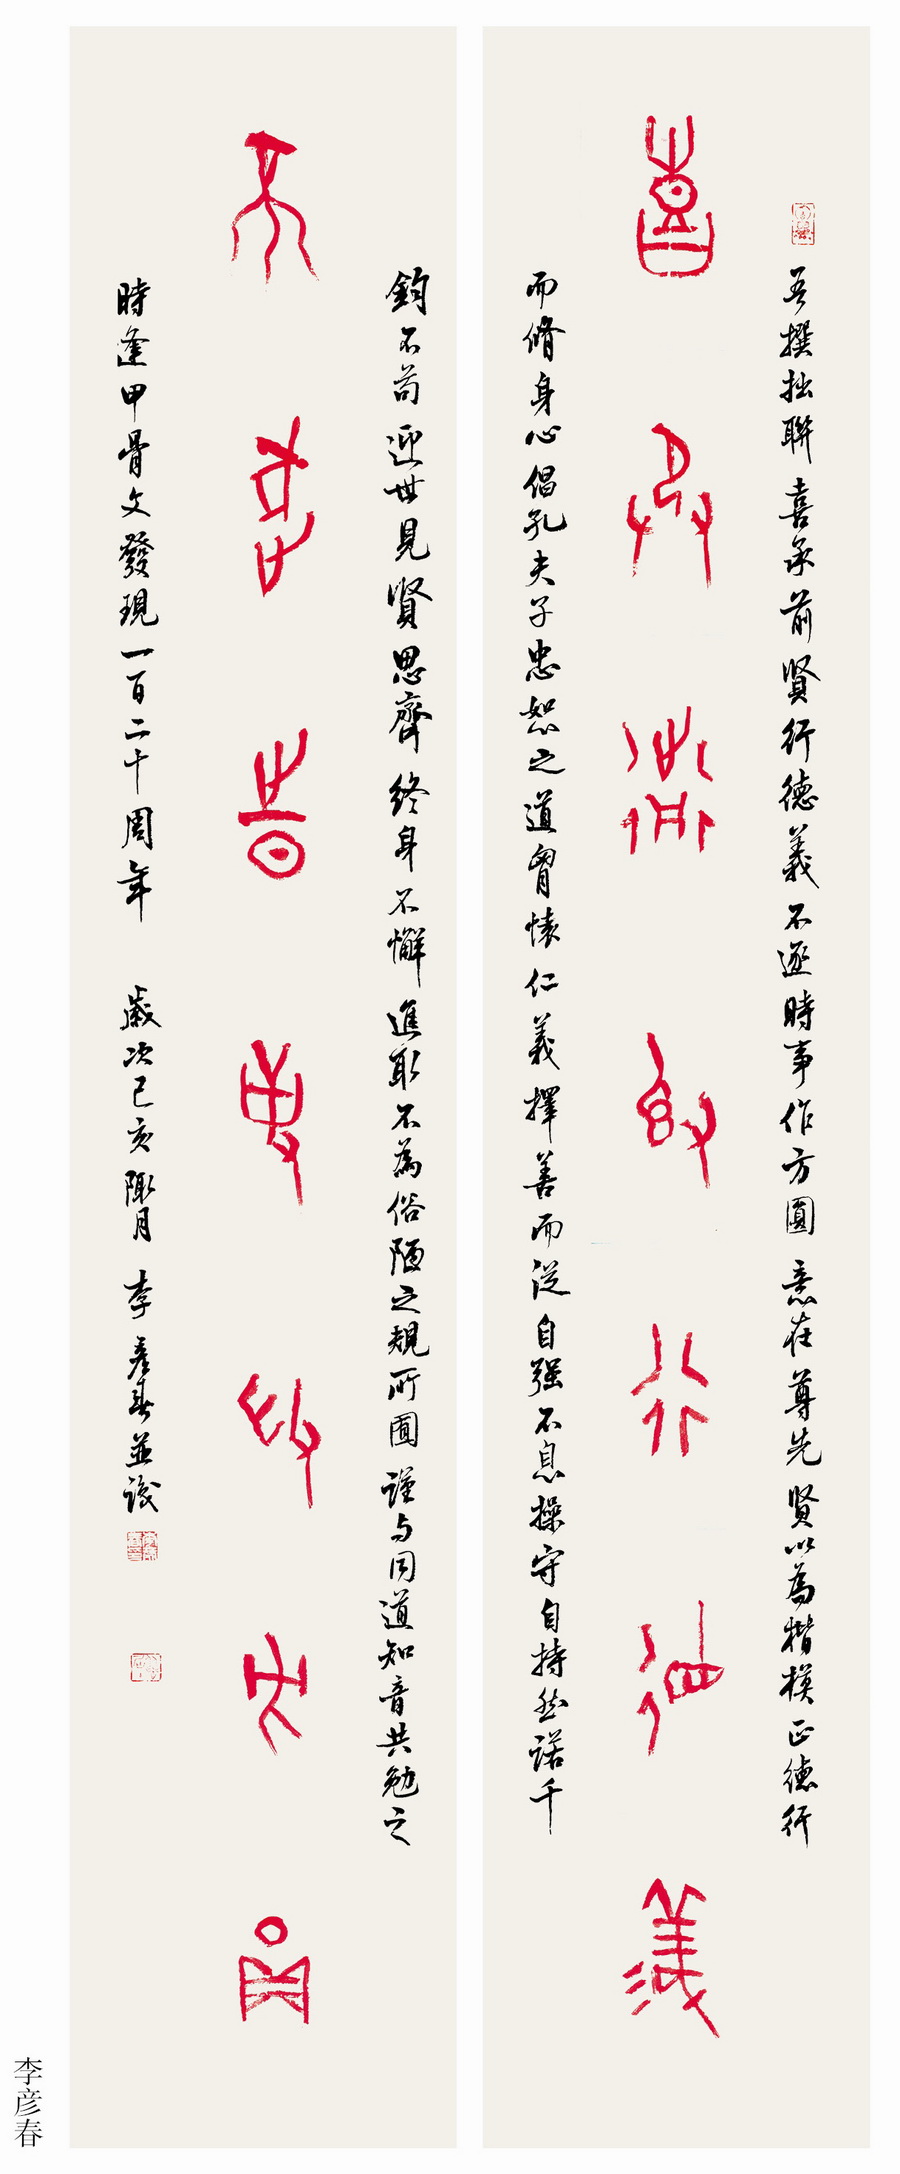 喜承前賢行德義
吾撰拙聯喜承前賢行德義不逐時事作方圓意在尊先賢以為楷模正德行
而脩身心倡孔夫子忠恕之道胷懷仁義擇善而從自强不息操守自持然諾千
不逐時事作方圓
鈞不苟迎世見賢思齊終身不懈進取不為俗陋之規所囿謹与同道知音共勉之
時逢甲骨文發現一百二十周年 歲次己亥陬月 李彦春並識
李彦春